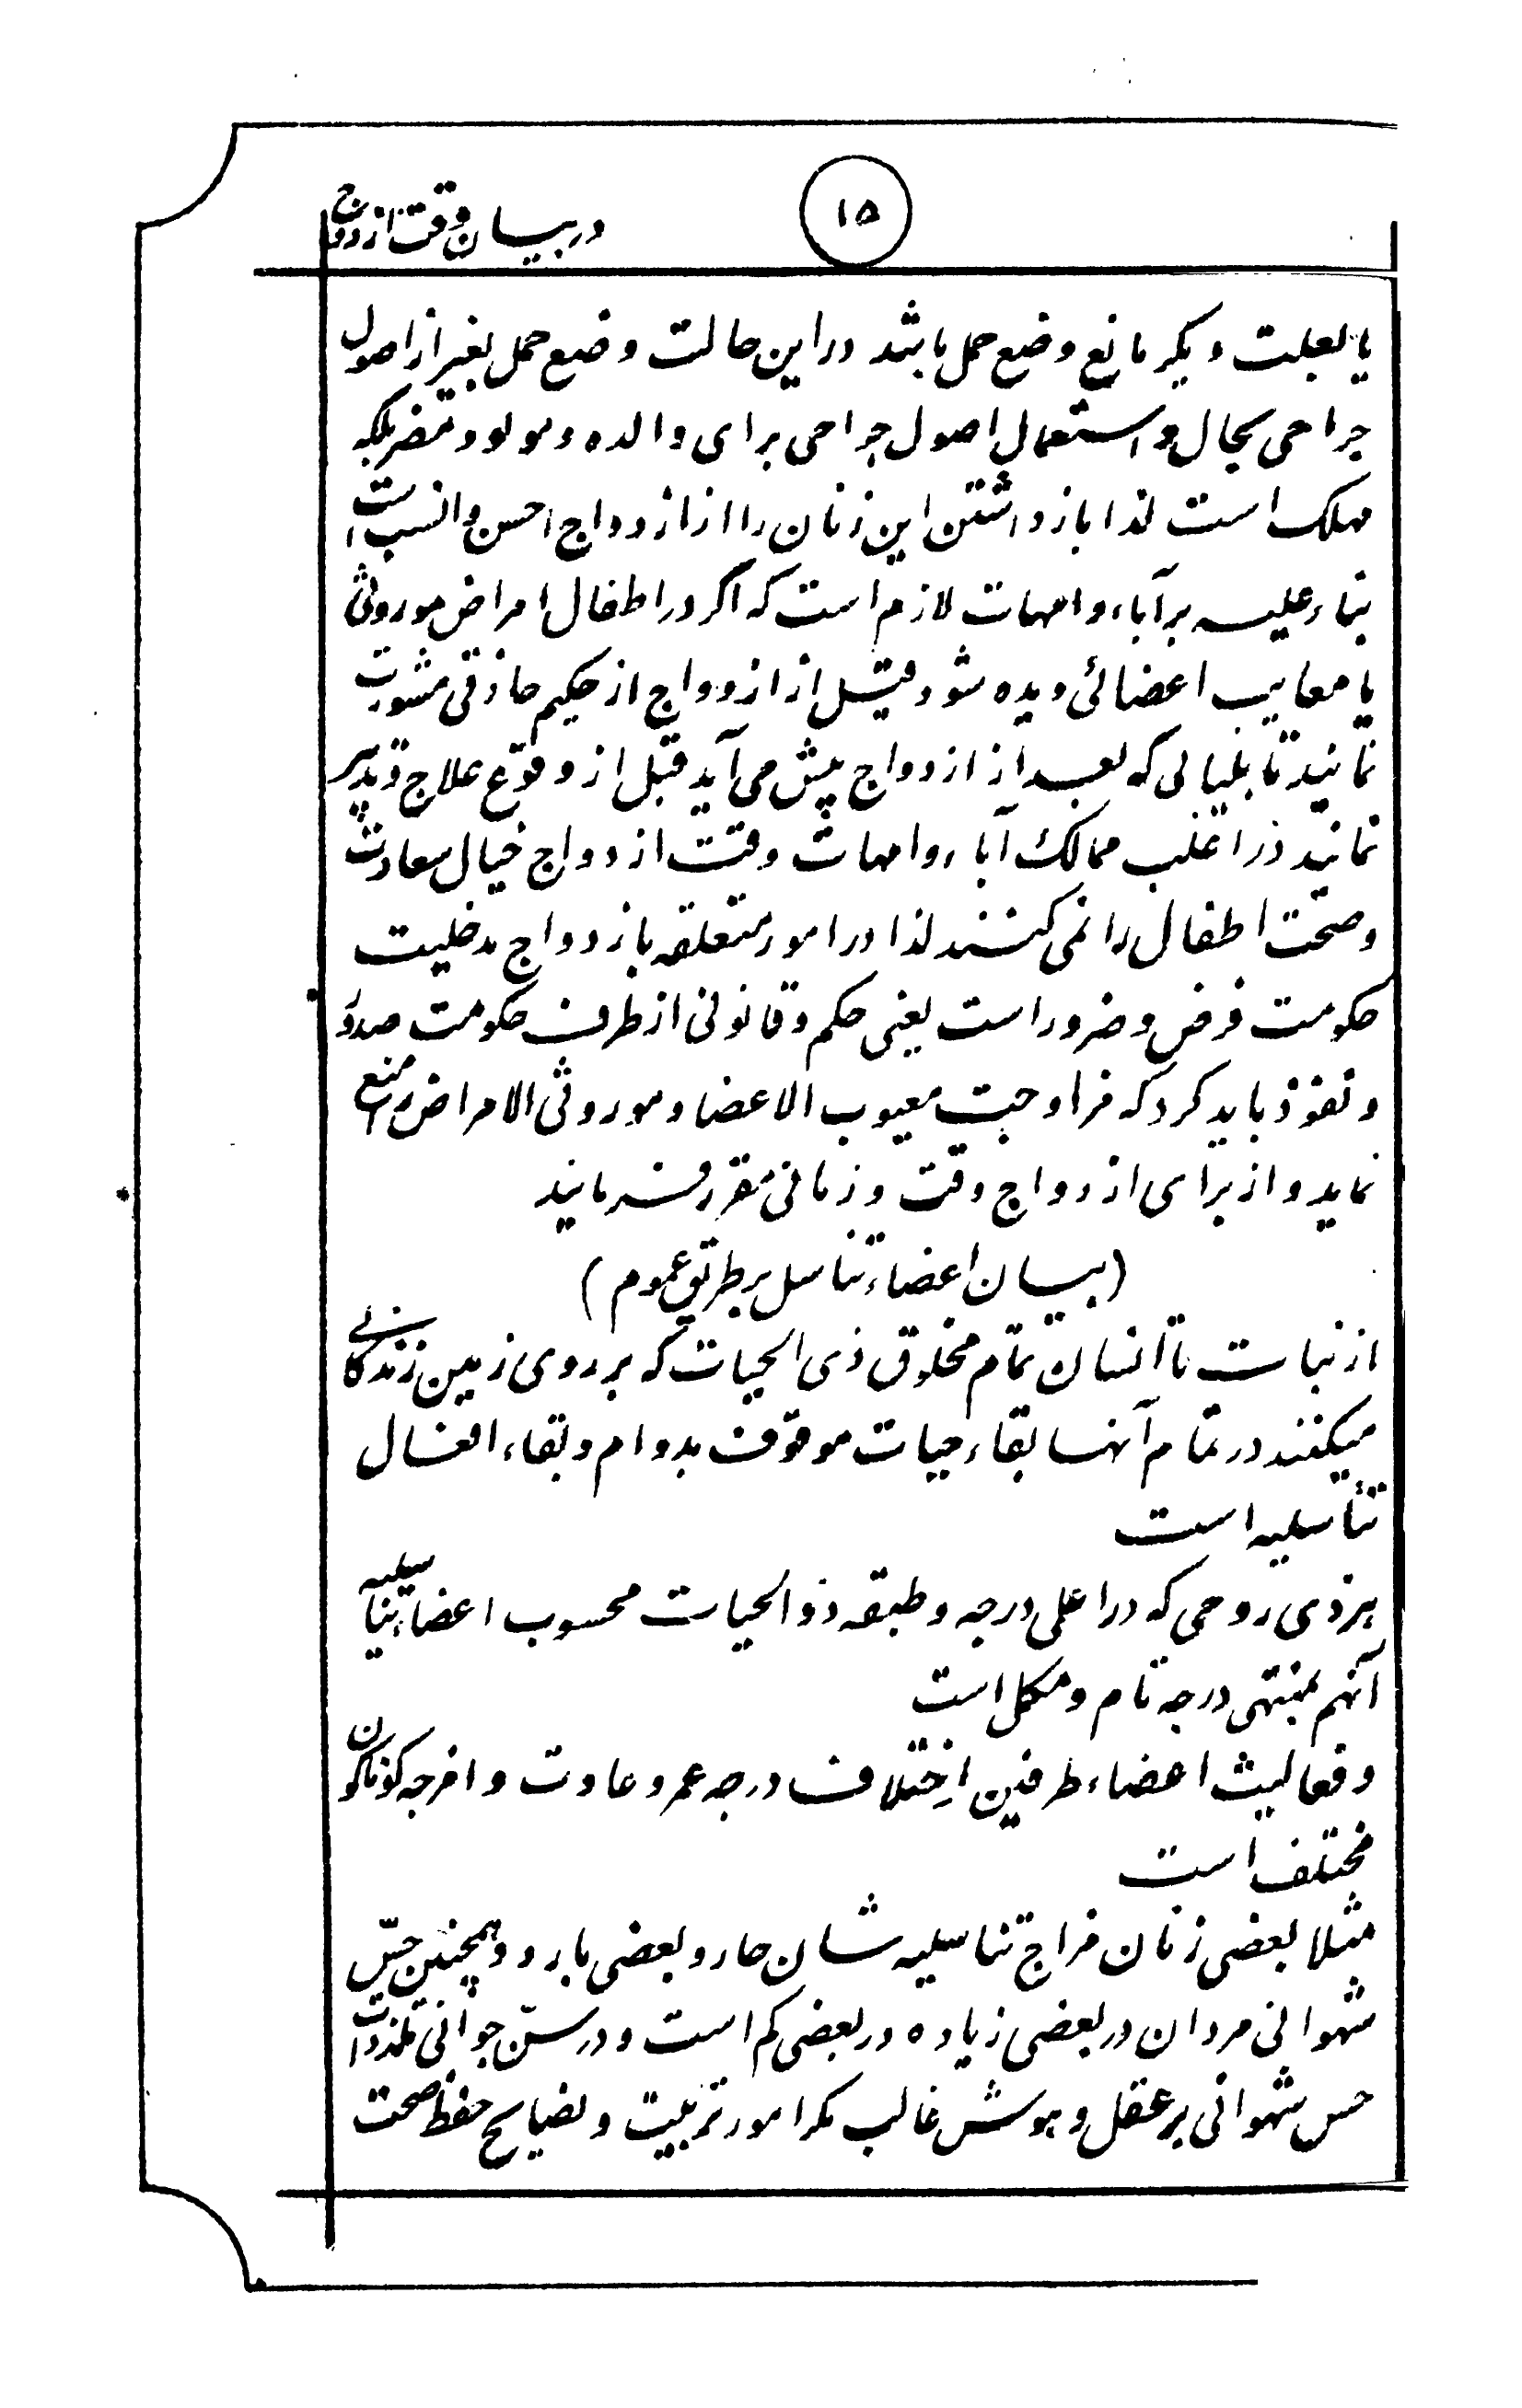 در بیان وقت ازدواج
۱۵
یا بعلت دیگر مانع وضع حمل باشد در این حالت وضع حمل بغیر از اصول
جراحی محال و استعمال اصول جراحی برای والده و مولود مضر بلکه
مهلک است لذا باز داشتن این زنان را از ازدواج احسن و انسب است
بناء علیه بر آباء و امهات لازم است که اگر در اطفال امراض موروثی
یا معایب اعضائی دیده شود قبل از ازدواج از حکیم حاذقی مشورت
نمایند تا بلیاتی که بعد از ازدواج پیش می آید قبل از وقوع علاج و تدبیر
نمایند در اغلب ممالک آباء و امهات وقت ازدواج خیال سعادت
و صحت اطفال را نمی کنند لذا در امور متعلقه بازدواج مدخلیت
حکومت فرض و ضرور است یعنی حکم و قانونی از طرف حکومت صدور
و نفوذ باید کرد که مزاوجت معیوب الاعضا و موروثی الامراض را منع
نماید و از برای ازدواج وقت و زمانی مقرر فرمایند
(بیان اعضاء تناسل بر طریق عموم)
از نباتات تا انسان تمام مخلوق ذی الحیات که بر روی زمین زندگانی
میکنند در تمام آنها بقاء حیات موقوف بدوام و بقاء افعال
تناسلیه است
هر ذی روحی که در اعلی درجه و طبقه ذوالحیات محسوب اعضاء تناسلیه
آنهم بمنتهی درجه تام و مکمل است
و فعالیت اعضاء طرفین اختلاف درجه عمر و عادت و امزجه گوناگون
مختلف است
مثلا بعضی زنان مزاج تناسلیه شان حار و بعضی بارد و همچنین حسّ
شهوانی مردان در بعضی زیاده در بعضی کم است و در سنّ جوانی تلذذات
حس شهوانی بر عقل و هوش غالب مگر امور تربیت و نصایح حفظ صحت